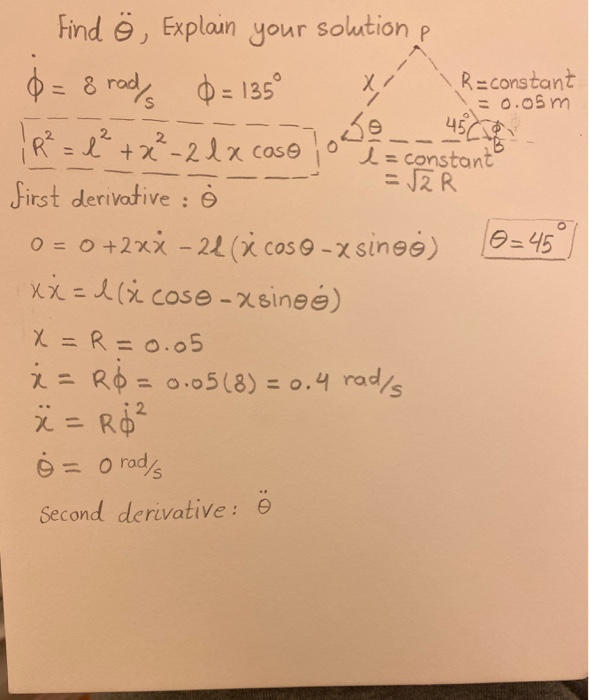 Find θ̈, Explain your solution
ϕ̇ = 8 rad/s ϕ = 135°
P
x
R = constant
= 0.05 m
θ
45°
ϕ
O
B
l = constant
= √2 R
R² = l² + x² - 2lx cosθ
first derivative : θ̇
0 = 0 + 2xẋ - 2l(ẋ cosθ - x sinθθ̇)
θ = 45°
xẋ = l(ẋ cosθ - x sinθθ̇)
x = R = 0.05
ẋ = Rϕ̇ = 0.05(8) = 0.4 rad/s
ẍ = Rϕ̇²
θ̇ = 0 rad/s
Second derivative: θ̈